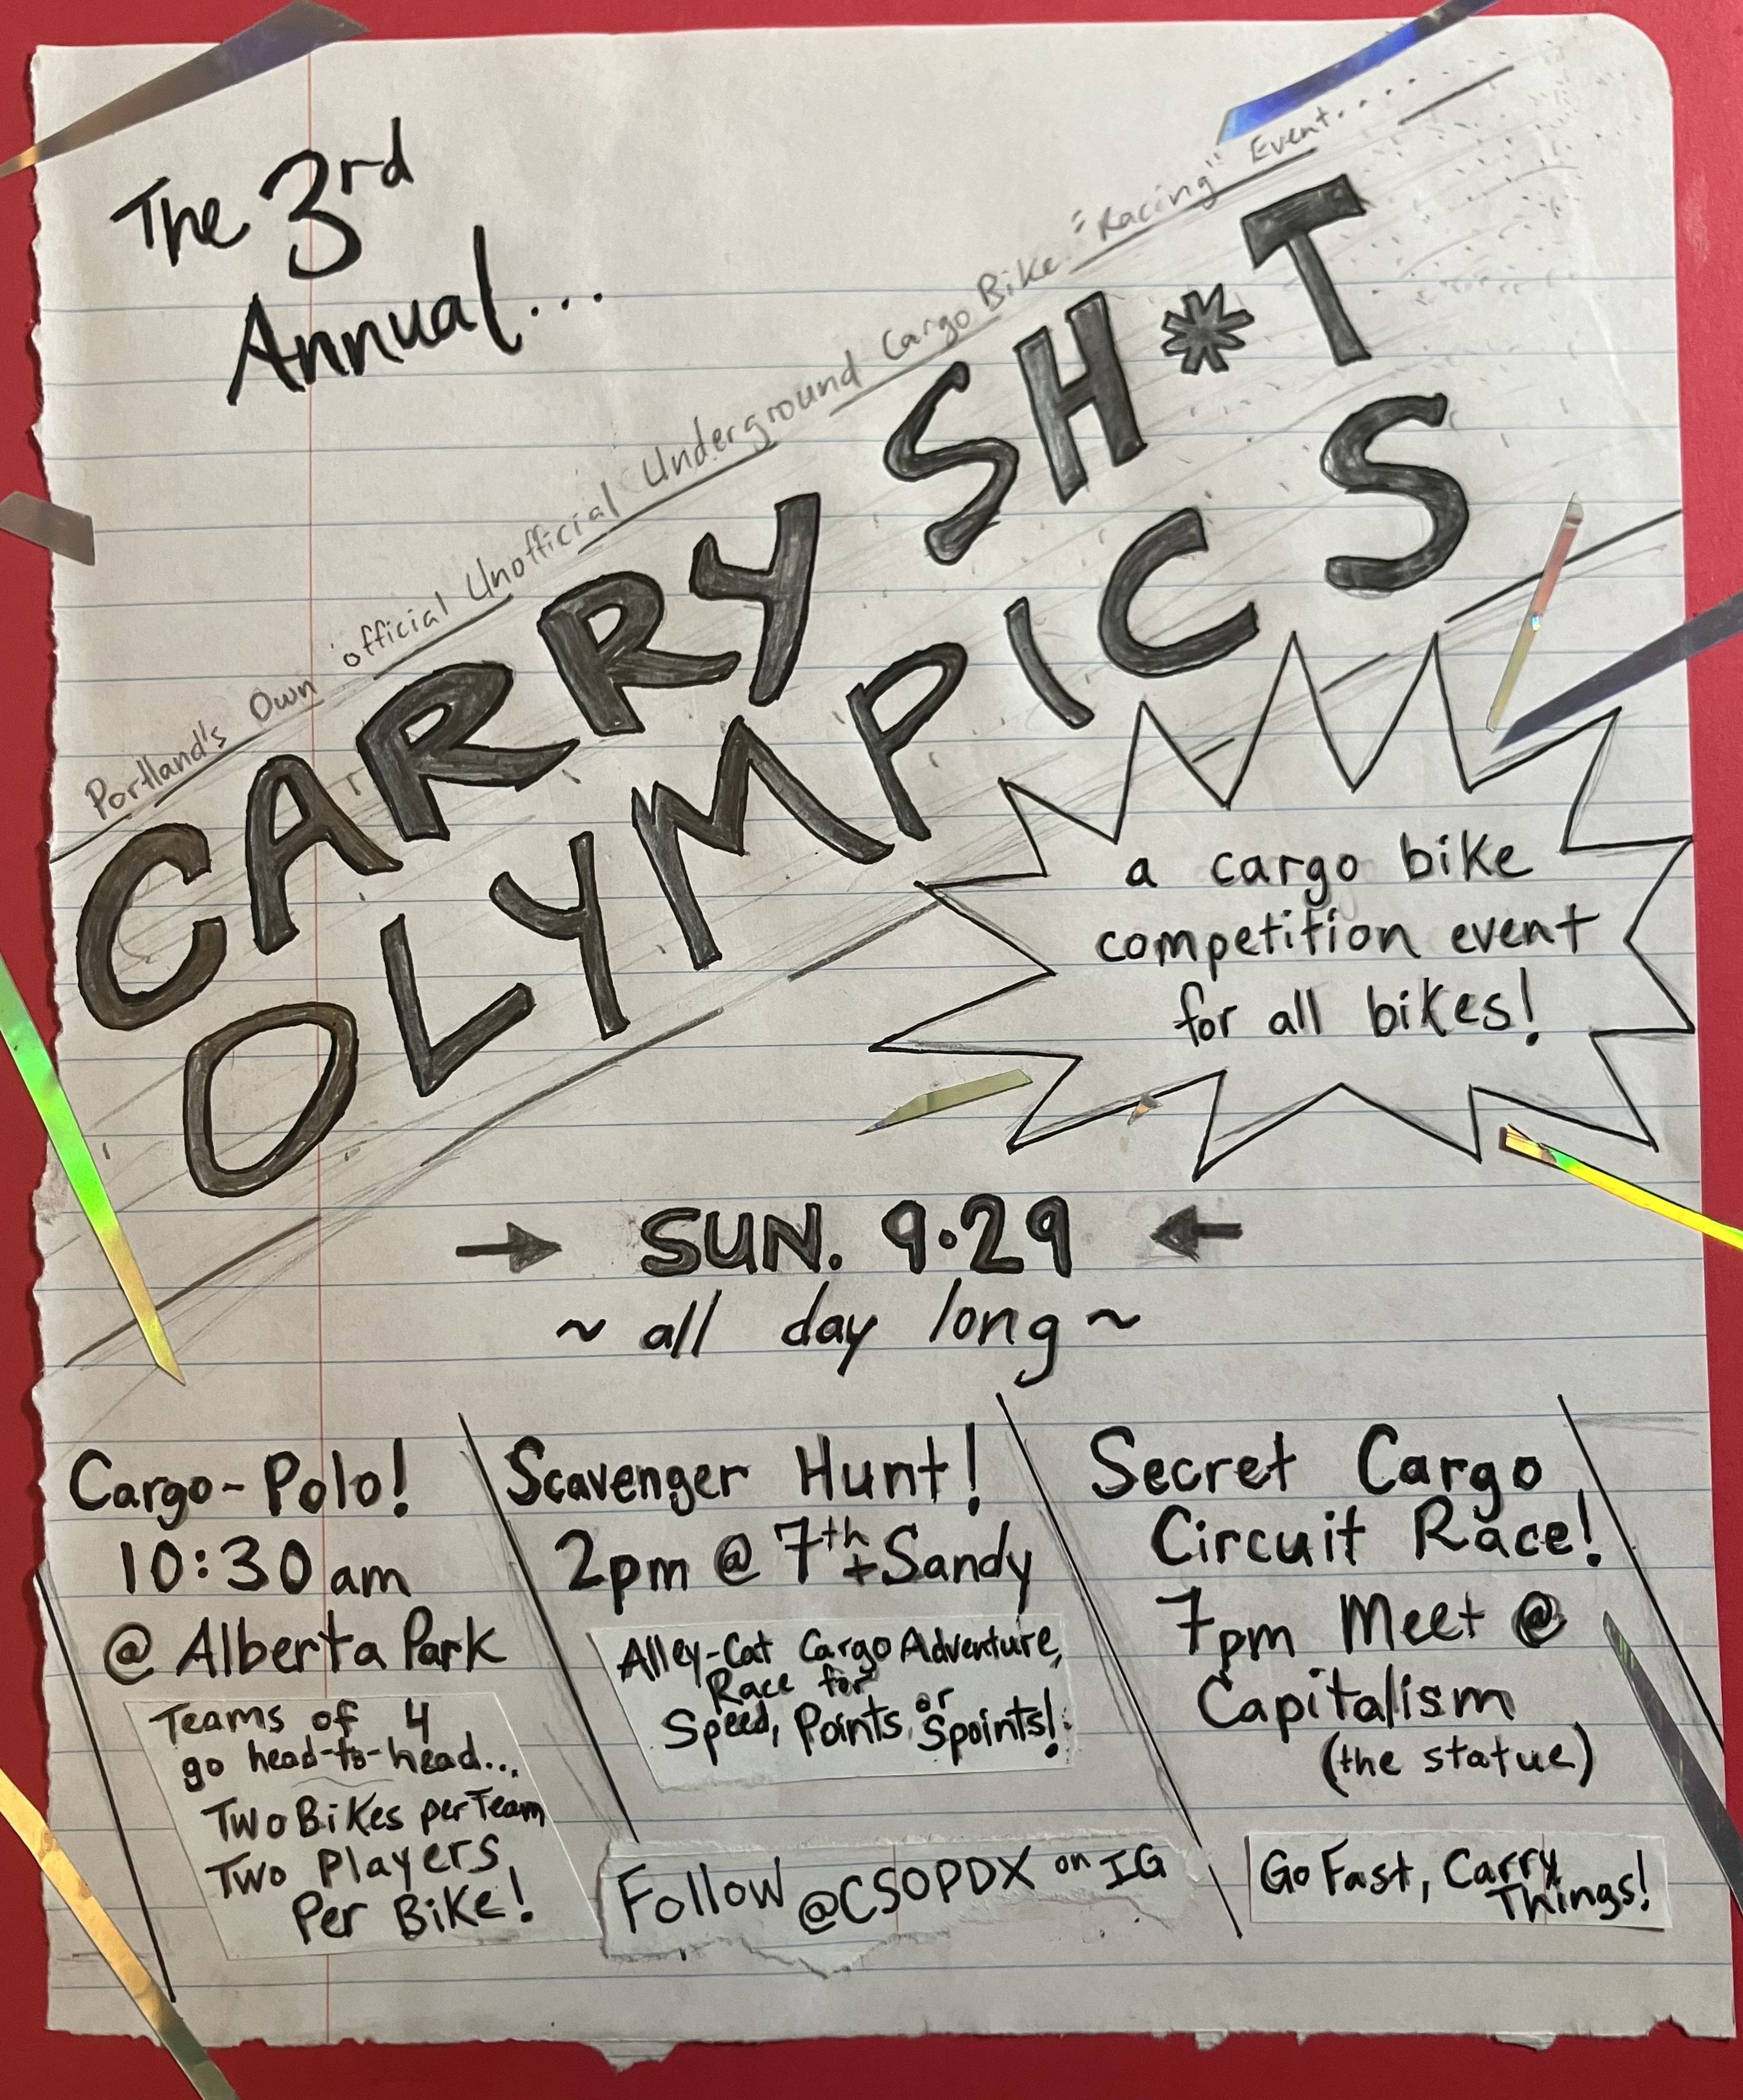 The 3rd
Annual...
Portland's Own "official Unofficial Underground Cargo Bike "Racing" Event.....
CARRY SH*T
OLYMPICS
a cargo bike
competition event
for all bikes!
SUN. 9.29
~ all day long ~
Cargo-Polo!
10:30 am
@ Alberta Park
Teams of 4
go head-to-head...
Two Bikes per Team
Two Players
Per Bike!
Scavenger Hunt!
2pm @ 7th + Sandy
Alley-Cat Cargo Adventure,
Race for
Speed, Points, or Spoints!
Follow @CSOPDX on IG
Secret Cargo
Circuit Race!
7pm Meet @
Capitalism
(the statue)
Go Fast, Carry
Things!